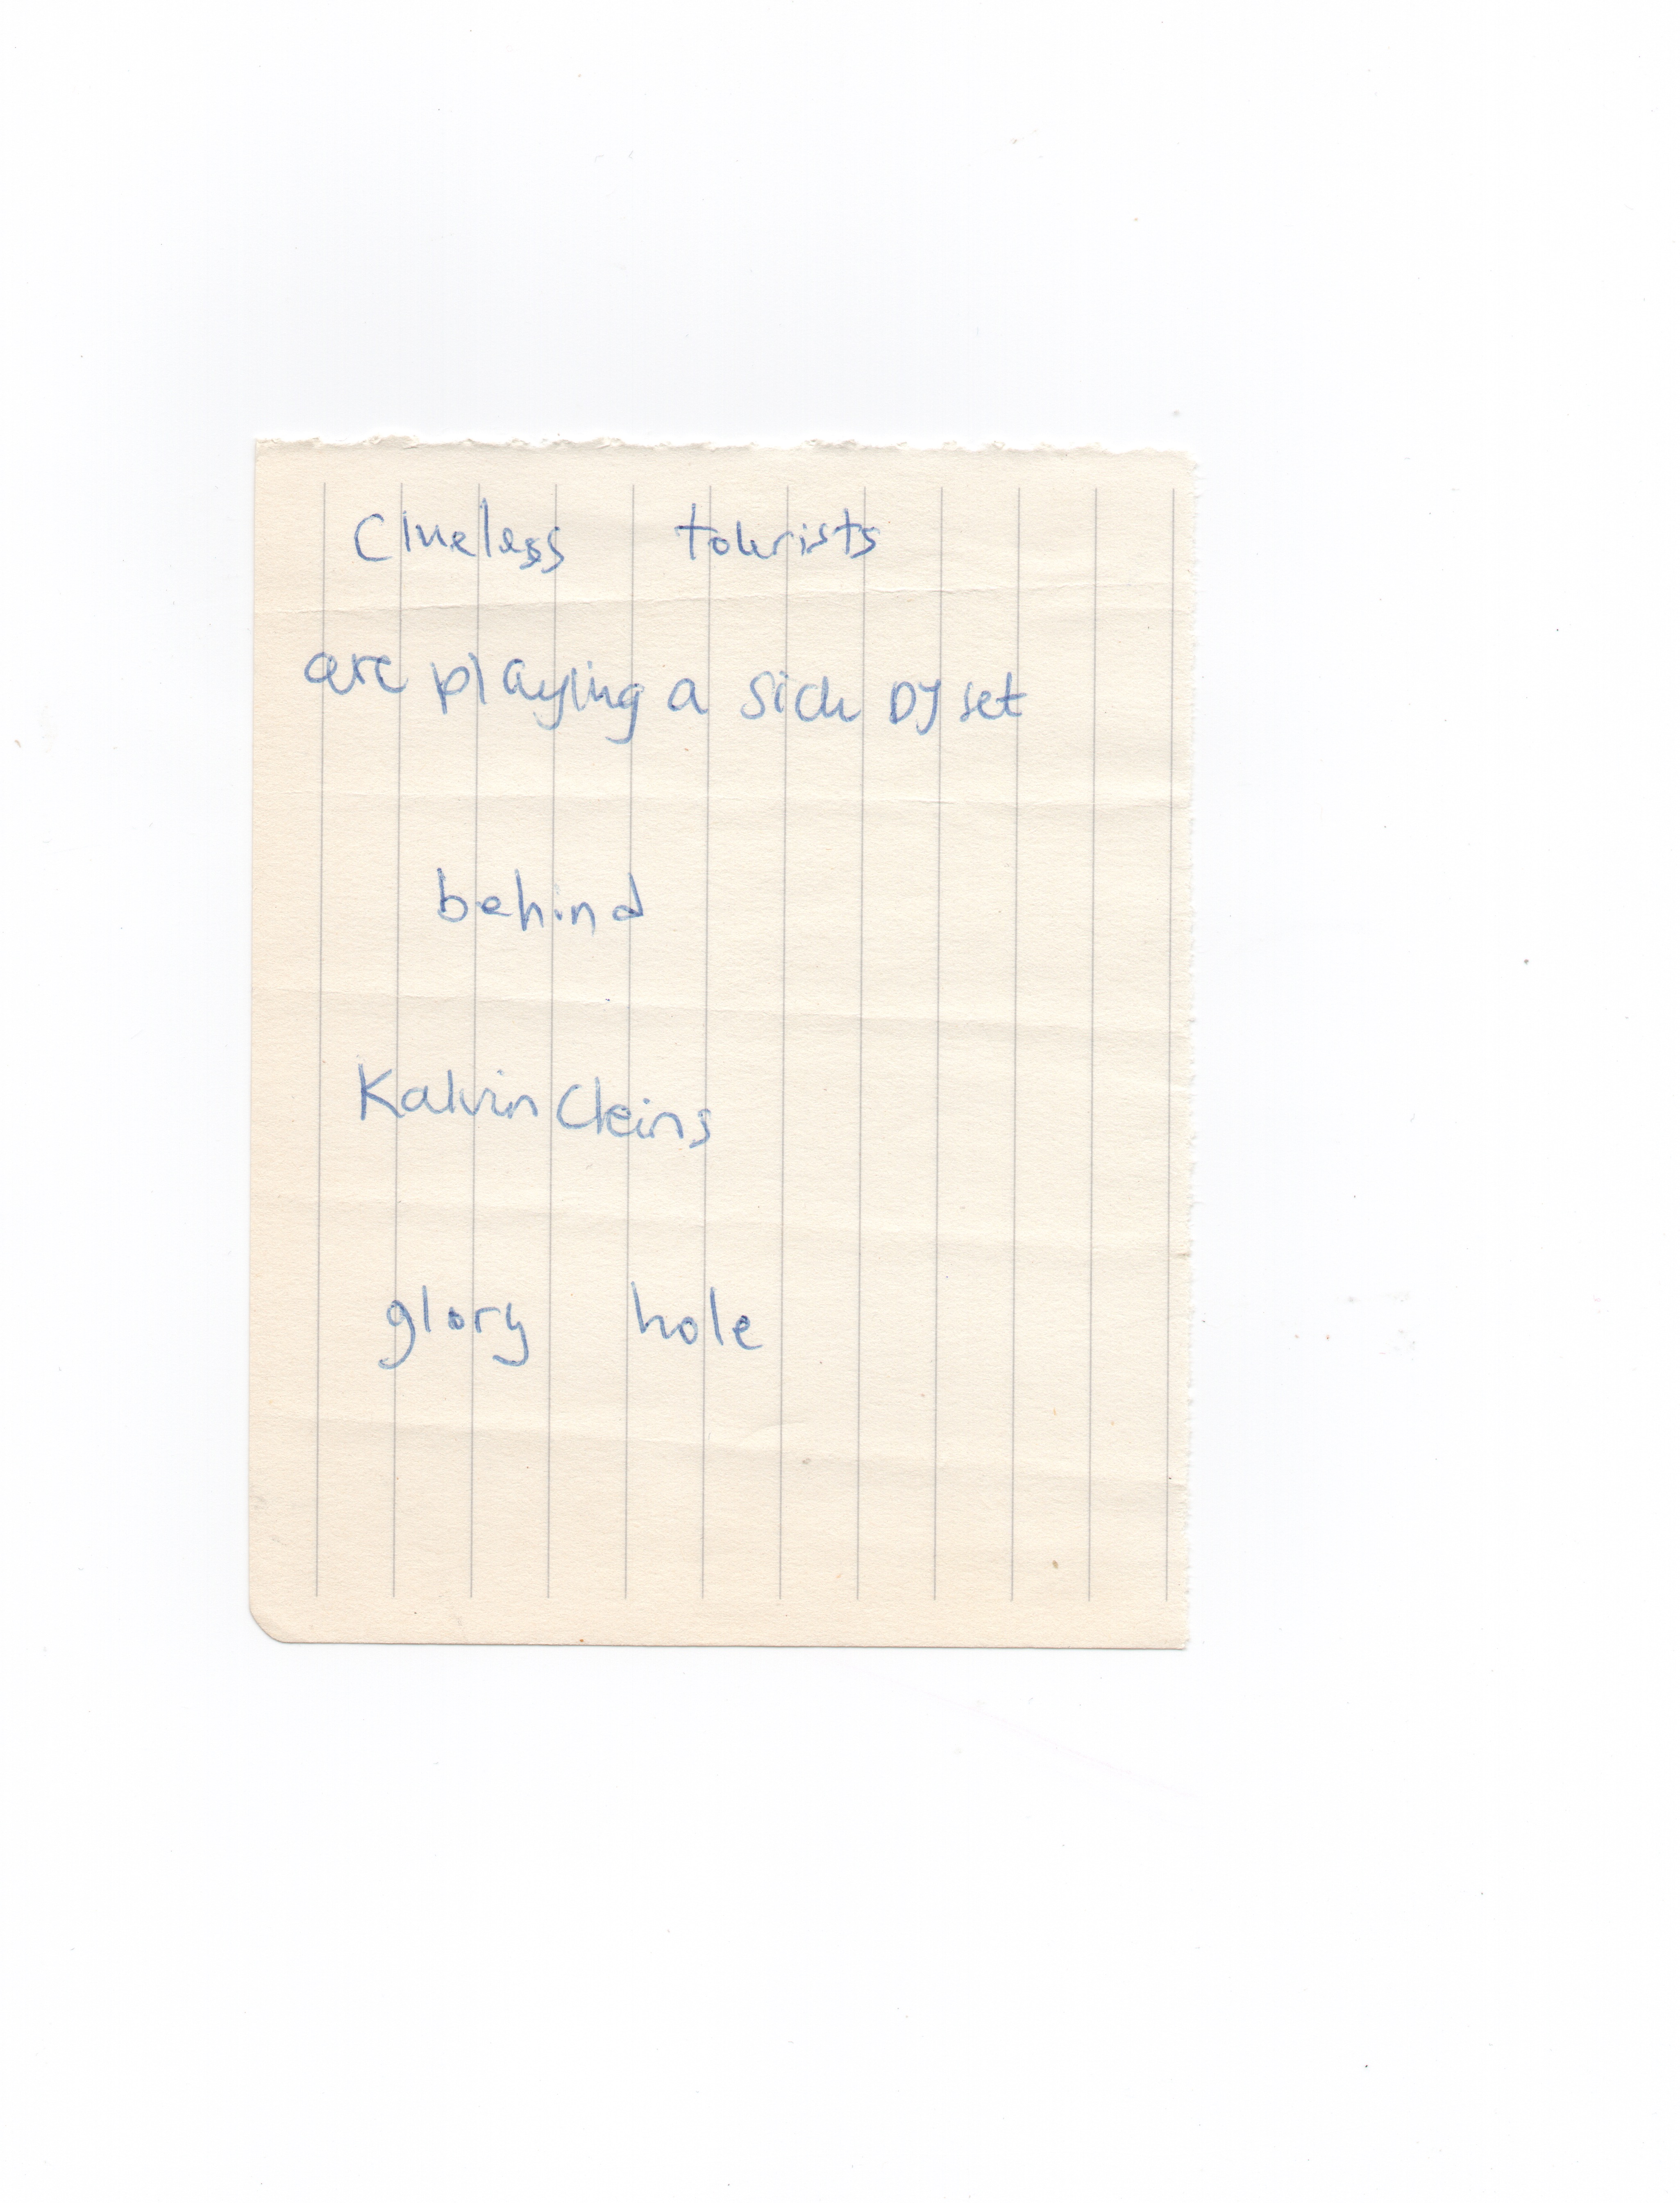 Clueless tourists
are playing a sick DJ set
behind
Kalvin Cleins
glory hole